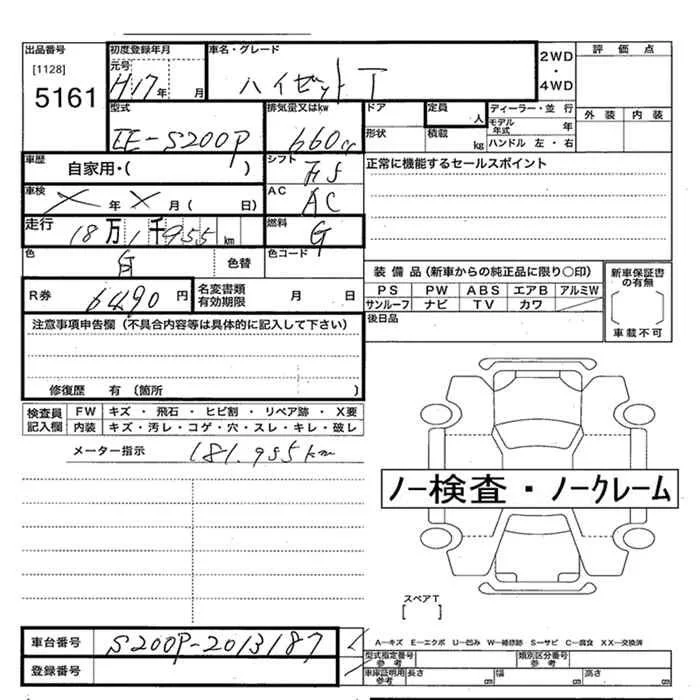 出品番号
[1128]
5161
初度登録年月
元号
H17年 月
車名・グレード
ハイゼットT
2WD
・
4WD
評価点
外装 内装
型式
EE-S200P
排気量又はkw
660cc
ドア
形状
定員
人
積載
kg
ディーラー・並行
モデル年式 年
ハンドル 左・右
車歴
自家用・( )
シフト
F5
正常に機能するセールスポイント
車検
× 年 × 月 ( 日)
AC
AC
走行
18万1千955km
燃料
G
色
色替
色コード
R券
6490円
名変書類
有効期限
月 日
装備品(新車からの純正品に限り○印)
PS PW ABS エアB アルミW
サンルーフ ナビ TV カワ
新車保証書
の有無
車載不可
後日品
注意事項申告欄(不具合内容等は具体的に記入して下さい)
修復歴 有(箇所 )
検査員
記入欄
FW キズ・飛石・ヒビ割・リペア跡・X要
内装 キズ・汚レ・コゲ・穴・スレ・キレ・破レ
メーター指示 181.955km
ノー検査・ノークレーム
スペアT
[ ]
車台番号 S200P-2013187
登録番号
A―キズ E―エクボ U―凹み W―補修跡 S―サビ C―腐食 XX―交換済
型式指定番号
参考
類別区分番号
参考
車庫証明用
参考
長さ cm 幅 cm 高さ cm